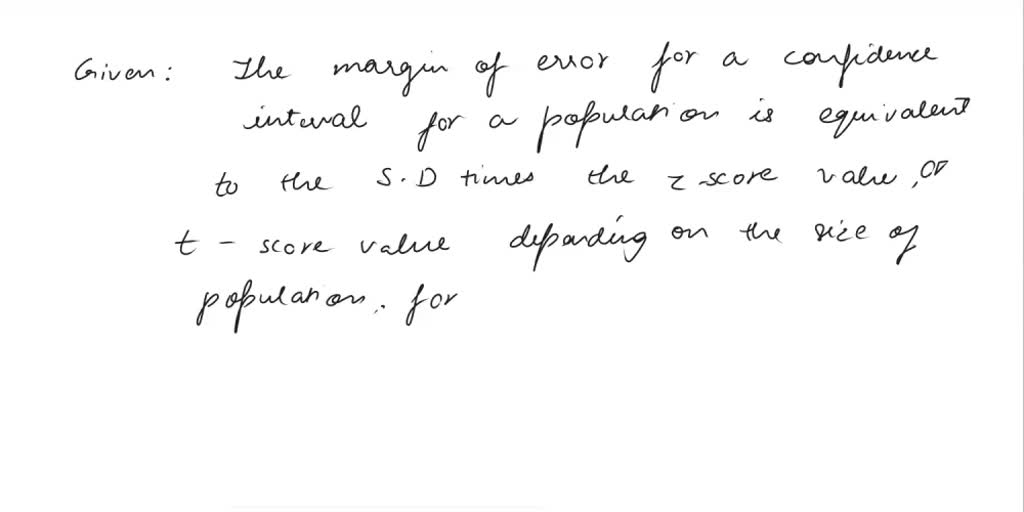 Given: The margin of error for a confidence
interval for a population is equivalent
to the S.D times the z-score value, or
t - score value depending on the size of
population. for